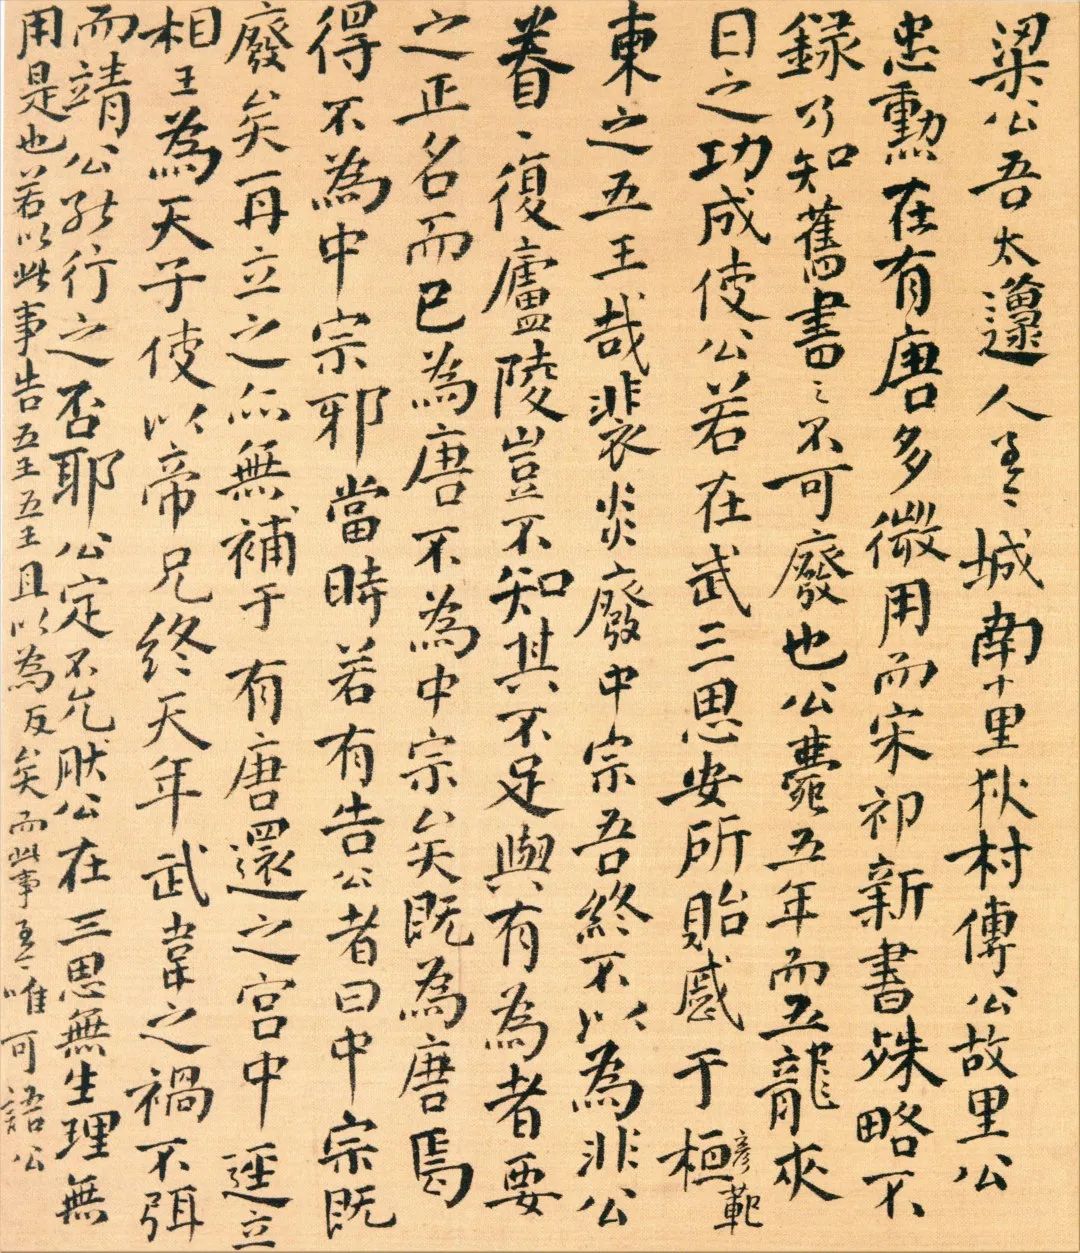 梁公吾太邍人至今城南十里狄村傳公故里公
忠勳在有唐多微用而宋祁新書殊略不
録乃知舊書之不可廢也公薨五年而五龍夾
日之功成使公若在武三思安所貽慼于桓彥範
柬之五王哉裴炎廢中宗吾終不以為非公
眷〻復廬陵豈不知其不足與有為者要
之正名而已為唐不為中宗矣既為唐焉
得不為中宗邪當時若有告公者曰中宗既
廢矣再立之亦無補于有唐還之宮中逕立
相王為天子使以帝兄終天年武韋之禍不弭
而靖公能行之否耶公定不允肰公在三思無生理無
用是也若以此事告五王五王且以為反矣而此事至今唯可語公